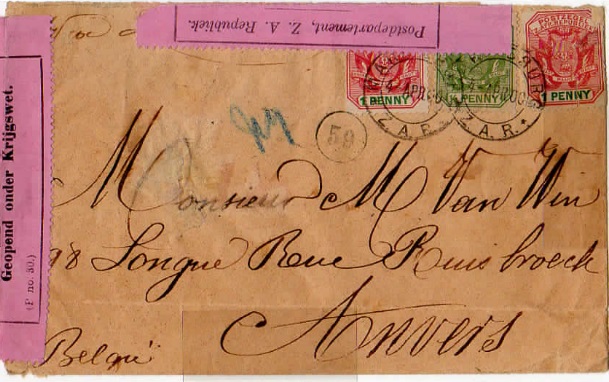 Postdepartement, Z. A. Republiek.
POSTZEGEL
1 PENNY
PENNY
1 PENNY
APR 00
Z.A.R.
Z.A.R.
59
Geopend onder Krijgswet.
(P no. 50.)
Monsieur M Van Win
98 Longue Rue Ruisbroeck
Anvers
België